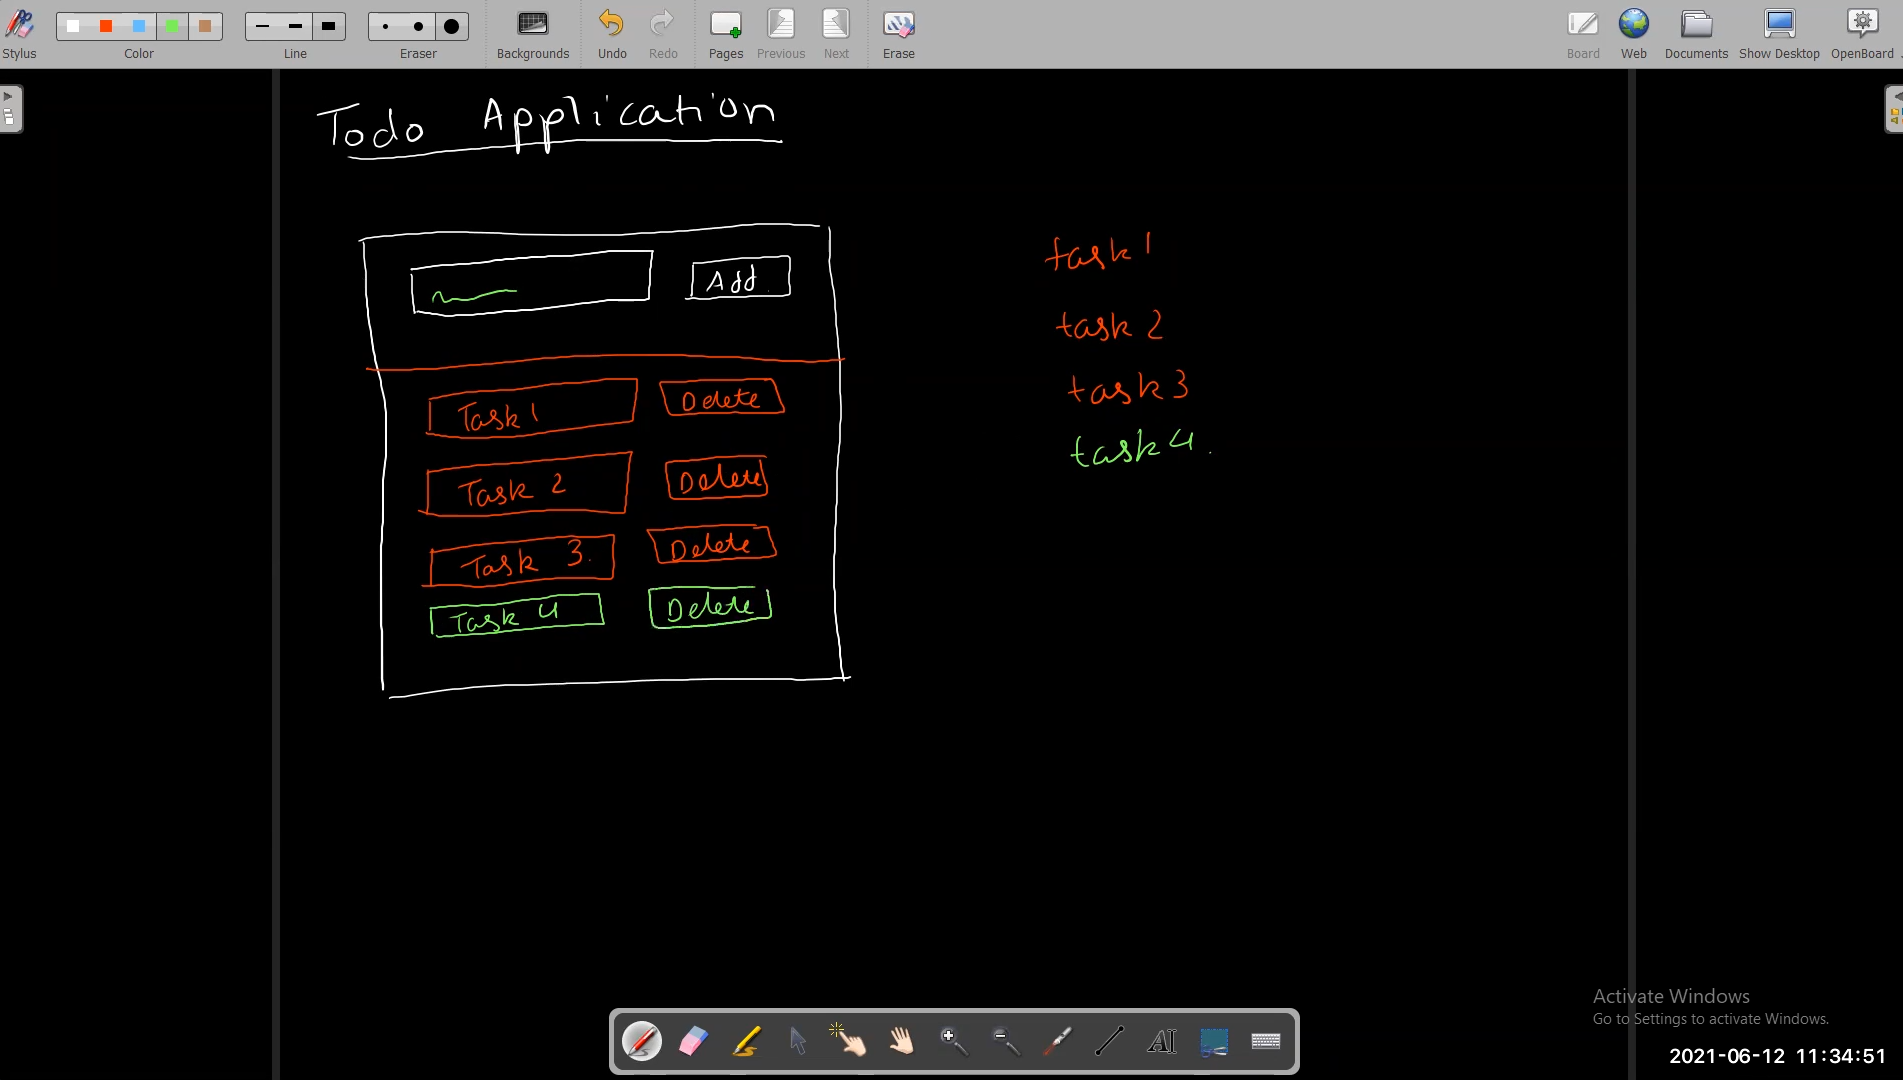 Stylus Color Line Eraser Backgrounds Undo Redo Pages Previous Next Erase Board Web Documents Show Desktop OpenBoard
Todo Application
Add
Task 1 Delete
Task 2 Delete
Task 3. Delete
Task 4 Delete
task 1
task 2
task 3
task 4.
AI
Activate Windows
Go to Settings to activate Windows.
2021-06-12 11:34:51